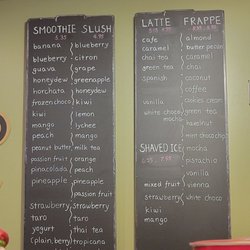 SMOOTHIE SLUSH
banana blueberry
blueberry citron
guava grape
honeydew greenapple
horchata honeydew
frozen choco kiwi
kiwi lemon
mango lychee
peach mango
peanut butter milk tea
passion fruit orange
pinacolada peach
pineapple pineapple
passion fruit
strawberry strawberry
taro taro
yogurt thai tea
(plain, berry) tropicana
LATTE FRAPPE
cafe almond
caramel butter pecan
chai tea caramel
green tea chai
spanish coconut
coffee
vanilla cookies cream
white choco mocha green tea
hazelnut
mint choco chip
SHAVED ICE mocha
pistachio
vanilla
mixed fruit vienna
strawberry white choco
kiwi
mango